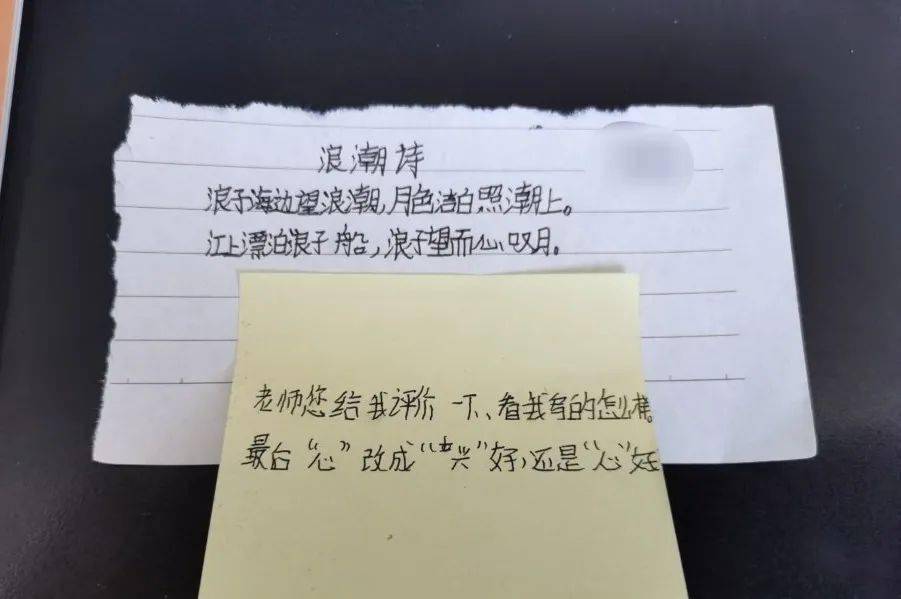 浪潮诗
浪子海边望浪潮,月色洁白照潮上。
江上漂泊浪子船,浪子望而心叹月。
老师您给我评价一下、看我写的怎么样
最后“心”改成“兴”好,还是“心”好